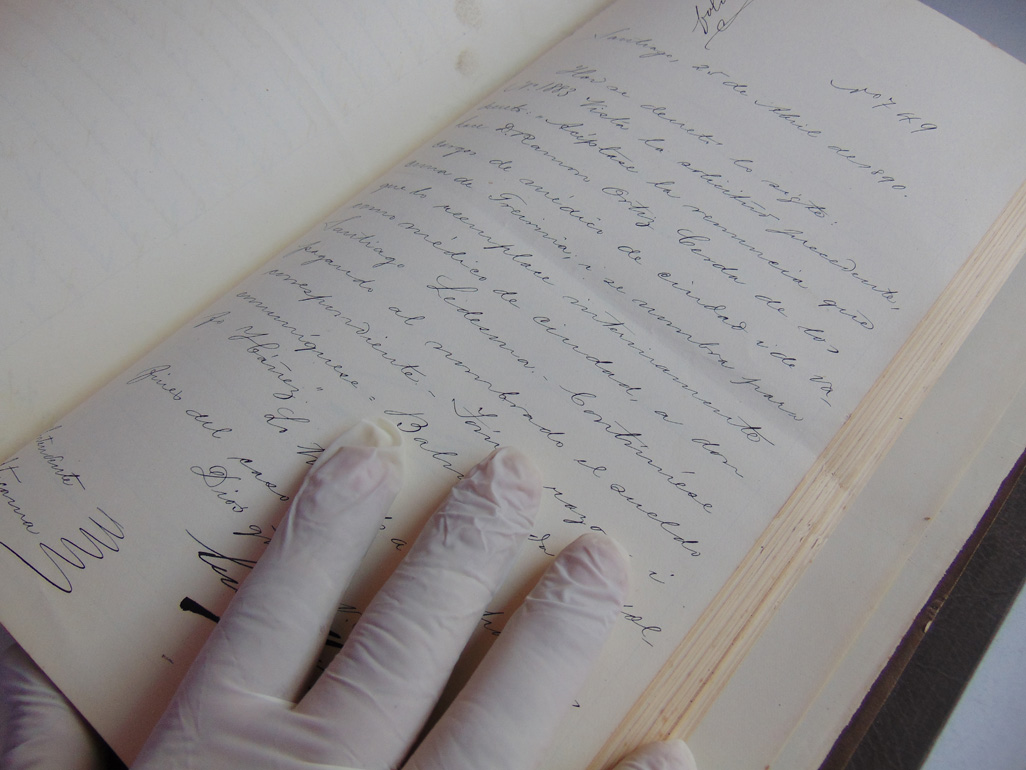 Nº 749
Santiago, 25 de Abril de 1890.
Hoi se decretó lo sigte:
Nº 1183 Vista la solicitud precedente,
decreto: Acéptase la renuncia que
hace D. Ramon Ortiz Cerda de los
cargos de médico de ciudad i de va-
cuna de Freirina, i se nombra para
que lo reemplace interinamente
como médico de ciudad, a don
Santiago Ledesma.- Continúese
pagando al nombrado el sueldo
correspondiente.- Tóm razon i
comuníquese = Balm da
Ibáñez." Lo
fines del caso
Dios